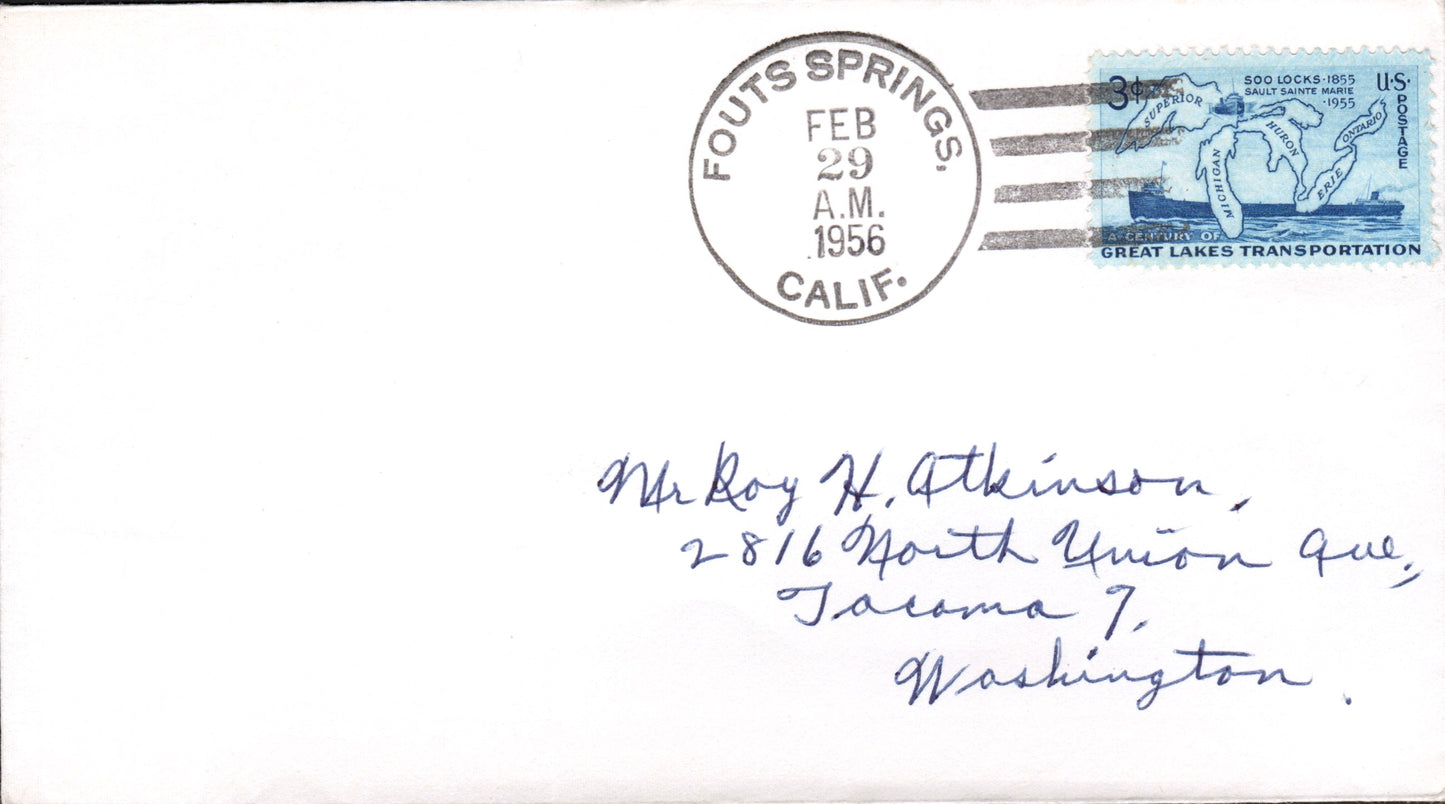 FOUTS SPRINGS,
FEB
29
A.M.
1956
CALIF.
3¢
SOO LOCKS·1855
SAULT SAINTE MARIE
·1955
U·S·
POSTAGE
SUPERIOR
MICHIGAN
HURON
ERIE
ONTARIO
A CENTURY OF
GREAT LAKES TRANSPORTATION
Mr Roy H. Atkinson,
2816 North Union Ave,
Tacoma 7,
Washington.